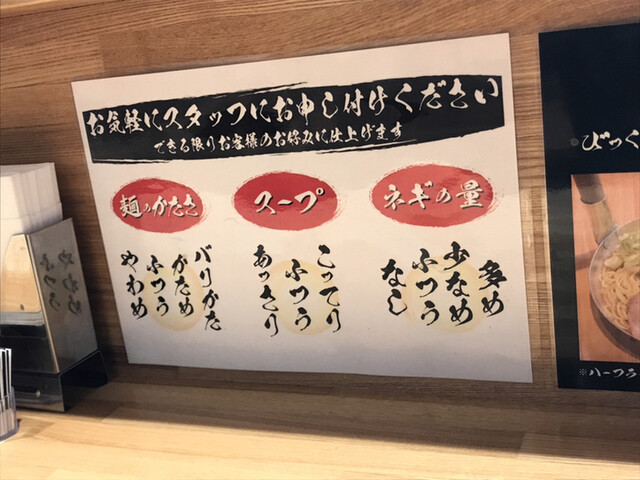 お気軽にスタッフにお申し付けください
できる限りお客様のお好みに仕上げます
麺のかたさ
バリかた
かため
ふつう
やわめ
スープ
こってり
ふつう
あっさり
ネギの量
多め
少なめ
ふつう
なし
びっく
※ハーフラ